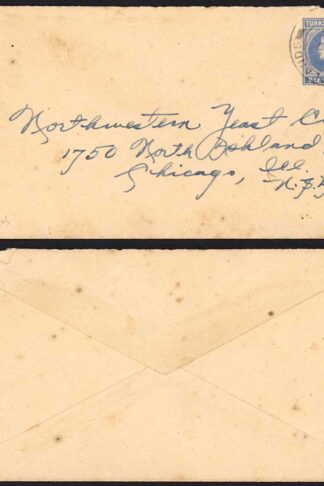 TURKS
Northwestern Yeast C
1750 North Ashland
Chicago, Ill.